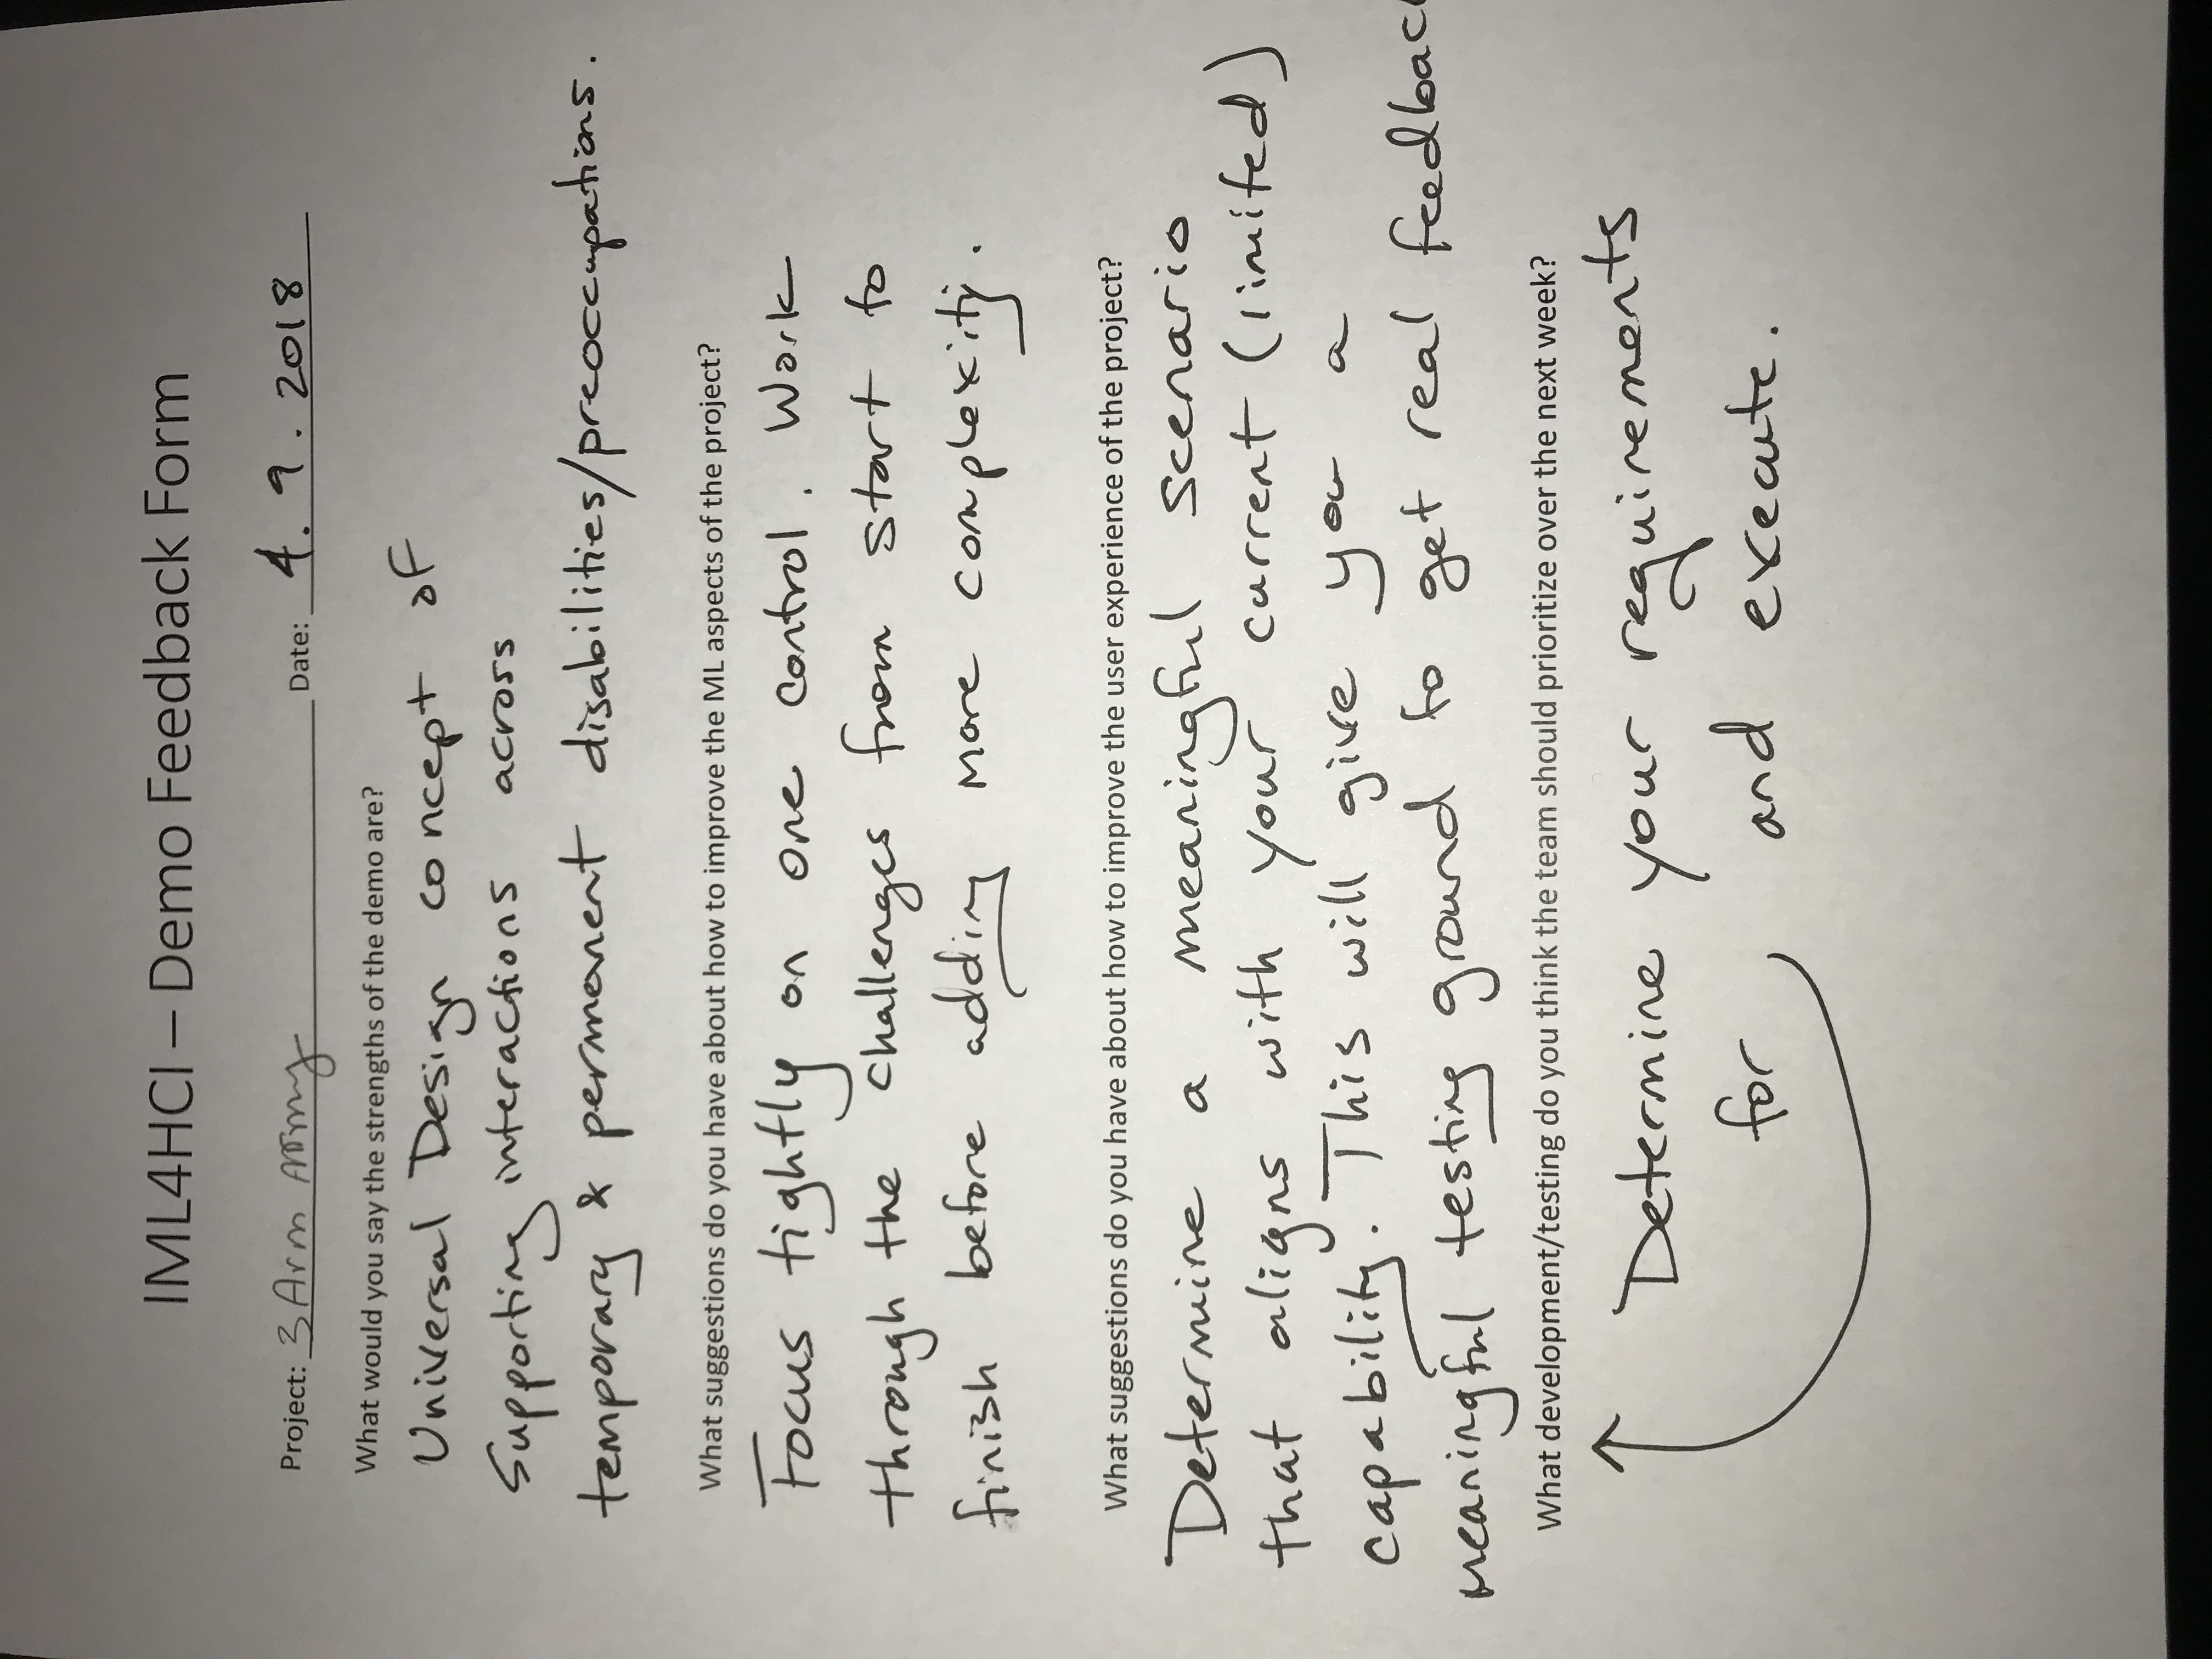 IML4HCI – Demo Feedback Form
Project: 3 Arm Army Date: 4. 9. 2018
What would you say the strengths of the demo are?
Universal Design concept of
Supporting interactions across
temporary & permanent disabilities/preoccupations.
What suggestions do you have about how to improve the ML aspects of the project?
Focus tightly on one control. Work
through the challenges from start to
finish before adding more complexity.
What suggestions do you have about how to improve the user experience of the project?
Determine a meaningful scenario
that aligns with your current (limited)
capability. This will give you a
meaningful testing ground to get real feedbac
What development/testing do you think the team should prioritize over the next week?
Determine your requirements
for and execute.